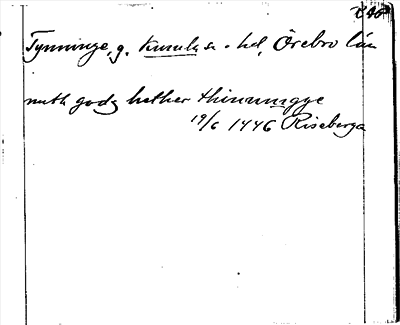 Tynninge, g. Kumla sn. hd, Örebro län
mith godz hether thinninngge
19/6 1446 Riseberga